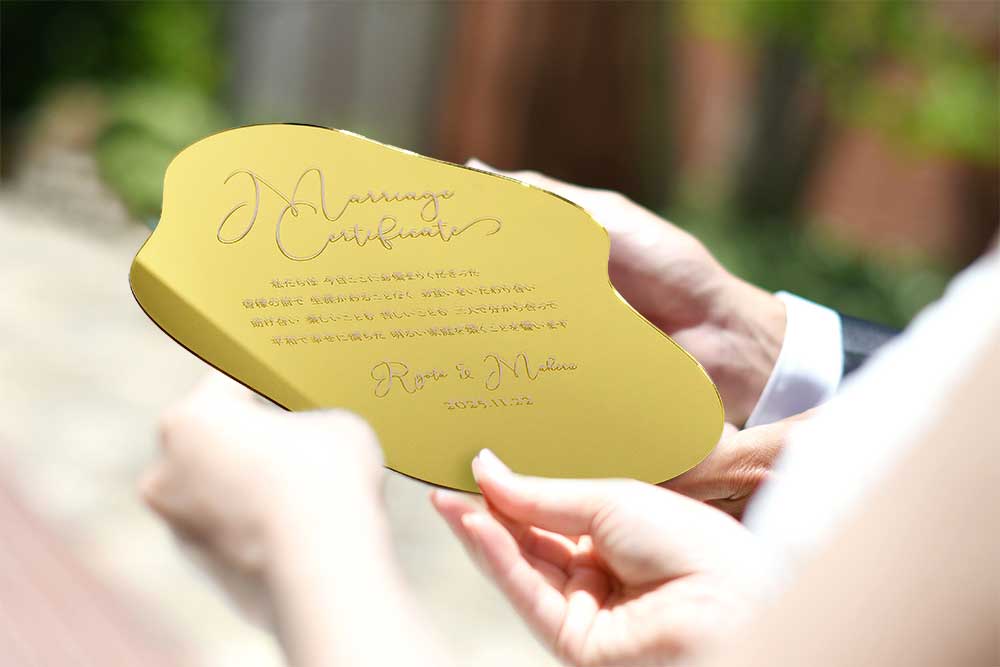 Marriage
Certificate
私たちは 今日ここにお集まりくださった
皆様の前で 生涯かわることなく お互いをいたわり合い
助け合い 楽しいことも 苦しいことも 二人で分かち合って
平和で幸せに満ちた 明るい家庭を築くことを誓います
Ryota & Mahiru
2025.11.22